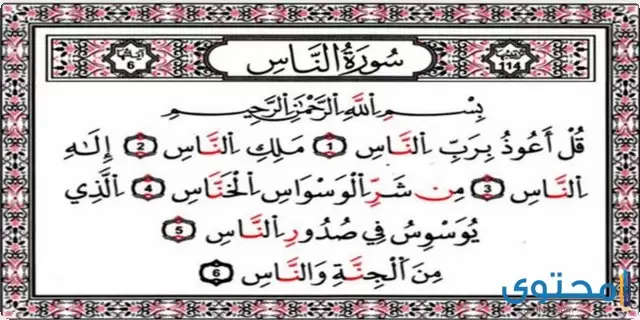 ترتيبها 114 سُورَةُ النَّاسِ آيَاتُهَا 6
بِسْمِ اللَّهِ الرَّحْمَٰنِ الرَّحِيمِ
قُلْ أَعُوذُ بِرَبِّ النَّاسِ 1 مَلِكِ النَّاسِ 2 إِلَٰهِ
النَّاسِ 3 مِن شَرِّ الْوَسْوَاسِ الْخَنَّاسِ 4 الَّذِي
يُوَسْوِسُ فِي صُدُورِ النَّاسِ 5
مِنَ الْجِنَّةِ وَالنَّاسِ 6
محتوى